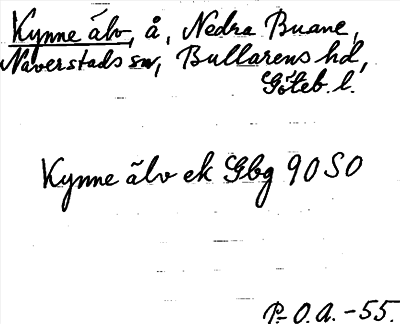 Kynne älv, å, Nedra Buane,
Naverstads sn, Bullarens hd,
Göteb. l.
Kynne älv ek Gbg 90 SO
P.-O.A. -55.